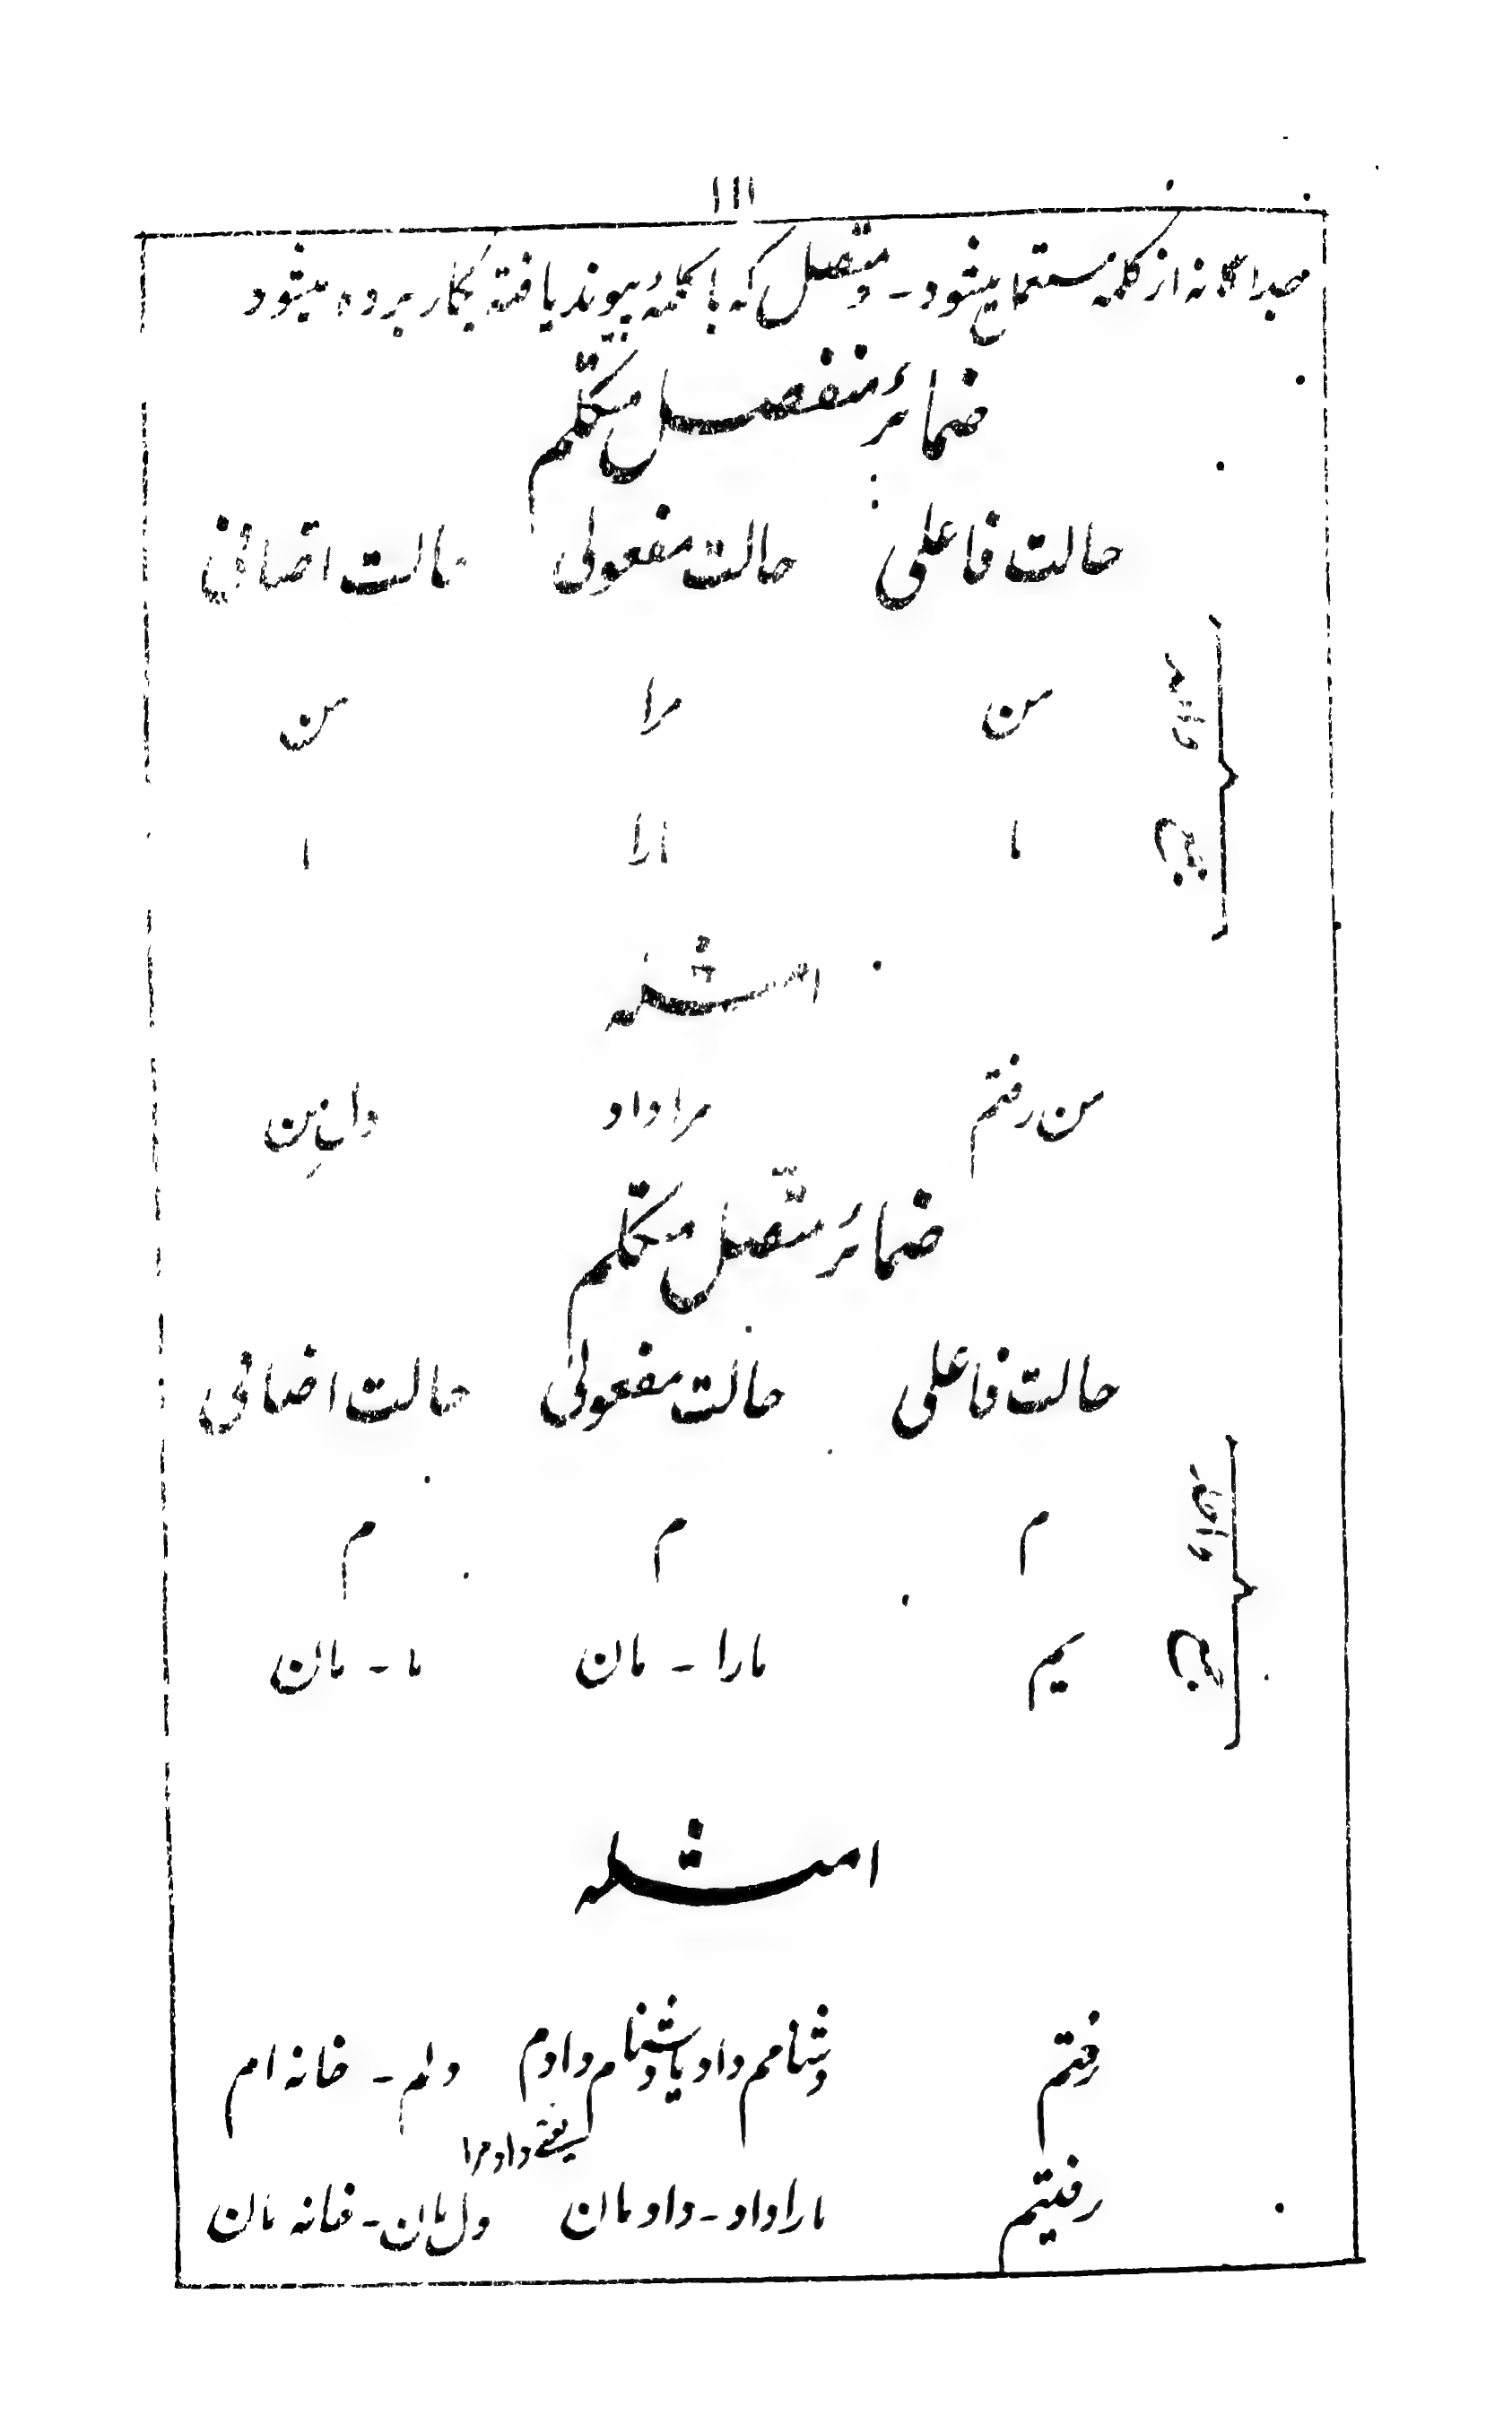 ۱۱۱
جداگانه از کلمه مستعمل میشود - و متصل که با کلمۂ پیوند یافته بکار برده میشود
ضمائر منفصل متکلم
حالت فاعلی حالت مفعولی حالت اضافی
واحد من مرا من
جمع ما مارا ما
امثله
من رفتم مرا داد دل من
ضمائر متصل متکلم
حالت فاعلی حالت مفعولی حالت اضافی
واحد م م م
جمع یم مارا - مان ما - مان
امثله
رفتم دشنامم داد یا دشنام دادم دلم - خانه ام
یعنے داد مرا
رفتیم مارا داد - داد مان دل مان - خانه مان